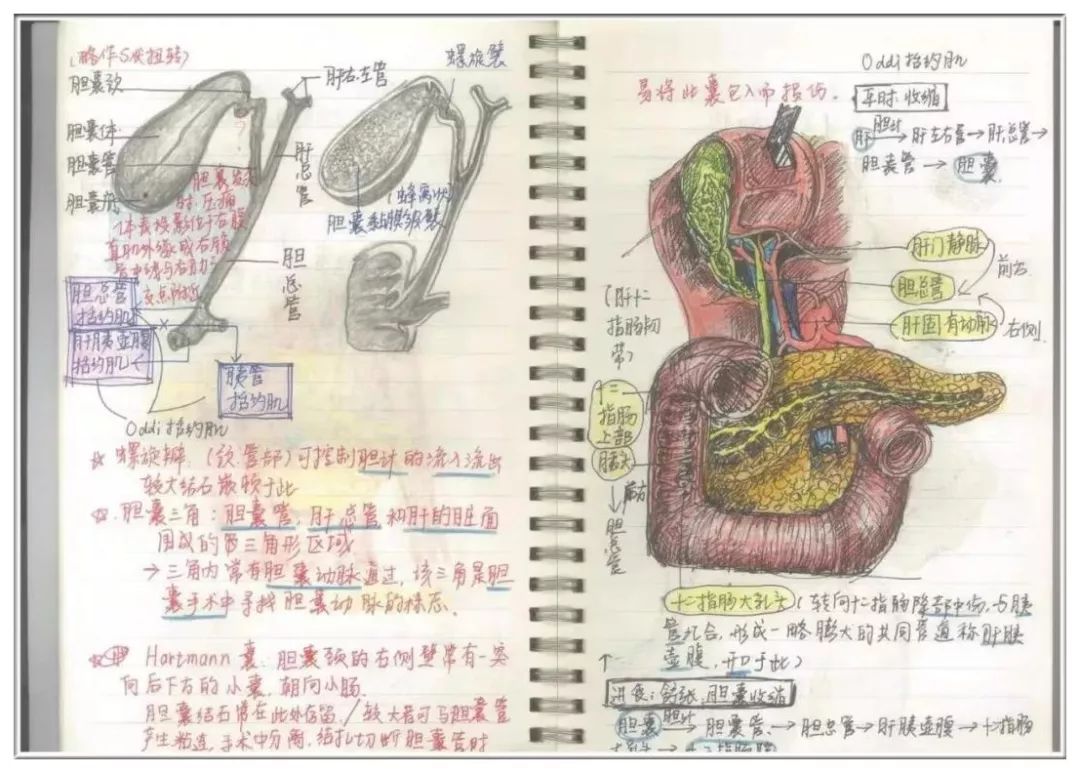 (略作S状扭转)
胆囊颈
胆囊体
胆囊管
胆囊底
肝右左管
螺旋襞
肝总管
胆总管
(蜂窝状)
胆囊黏膜
胆囊
时.压痛
体表投影位于右腹
直肌外缘或右腹
胆总管
括约肌
肝胰壶腹
括约肌
胰管
括约肌
Oddi括约肌
☆ 螺旋瓣.(颈.管部)可控制胆汁的流入流出
较大结石嵌顿于此
☆.胆囊三角:胆囊管,肝总管和肝的脏面
围成的三角形区域
→三角内常有胆囊动脉通过,该三角是胆
囊手术中寻找胆囊动脉的标志.
Hartmann囊:胆囊颈的右侧壁常有一突
向后下方的小囊,朝向小肠.
胆囊结石常在此处存留./较大者可与胆囊管
产生粘连,手术中分离,结扎切断胆囊管时
易将此囊包入而损伤.
Oddi括约肌
平时:收缩
肝 胆汁→肝左右管→肝总管→
胆囊管→胆囊.
肝门静脉
胆总管
肝固有动脉
前右
右侧
(肝十二指肠韧带)
十二指肠上部
胰头
胆总管
十二指肠大乳头(转向十二指肠降部中份,与胰
管汇合,形成一略膨大的共同管道称肝胰
壶腹,开口于此)
↑
进食:舒张.胆囊收缩
胆囊 胆汁→胆囊管.→胆总管→肝胰壶腹→十二指肠